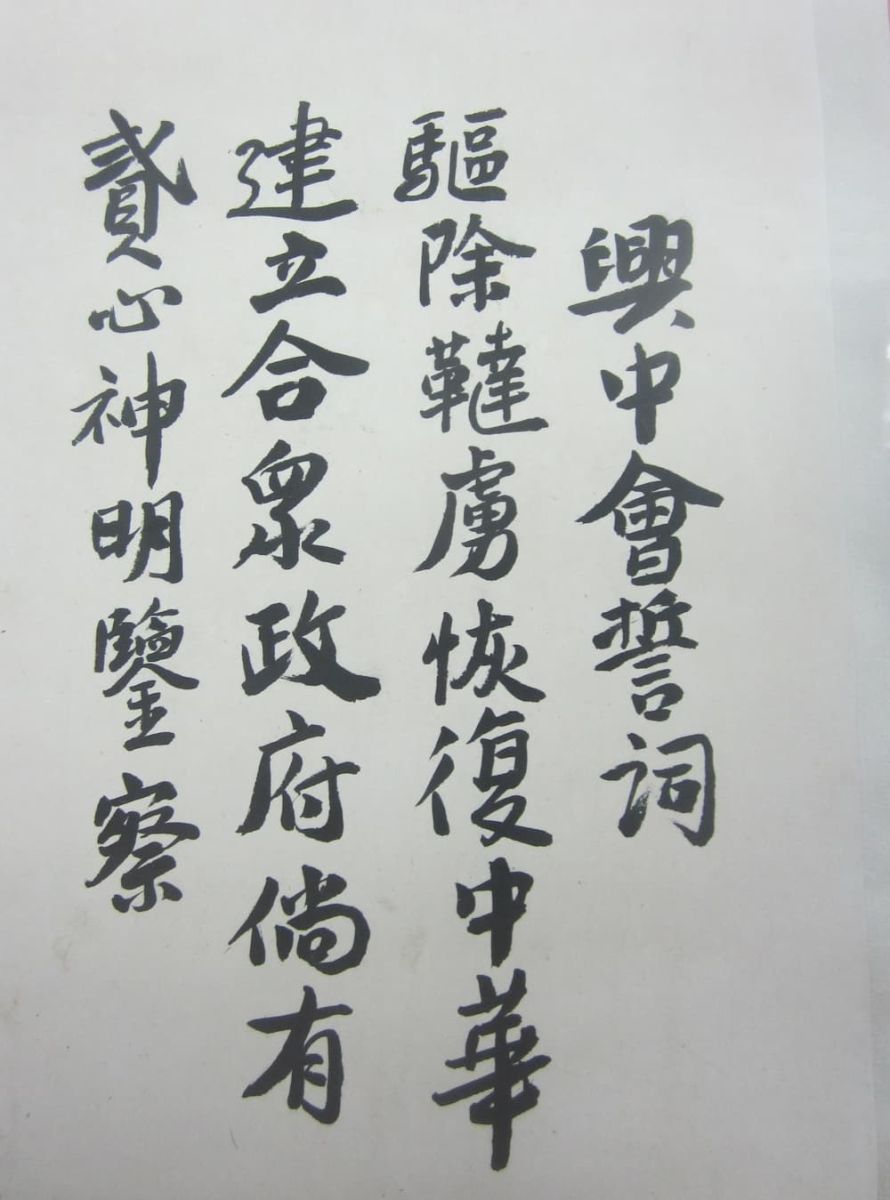 興中會誓詞
驅除韃虜恢復中華
建立合眾政府倘有
貳心神明鑒察